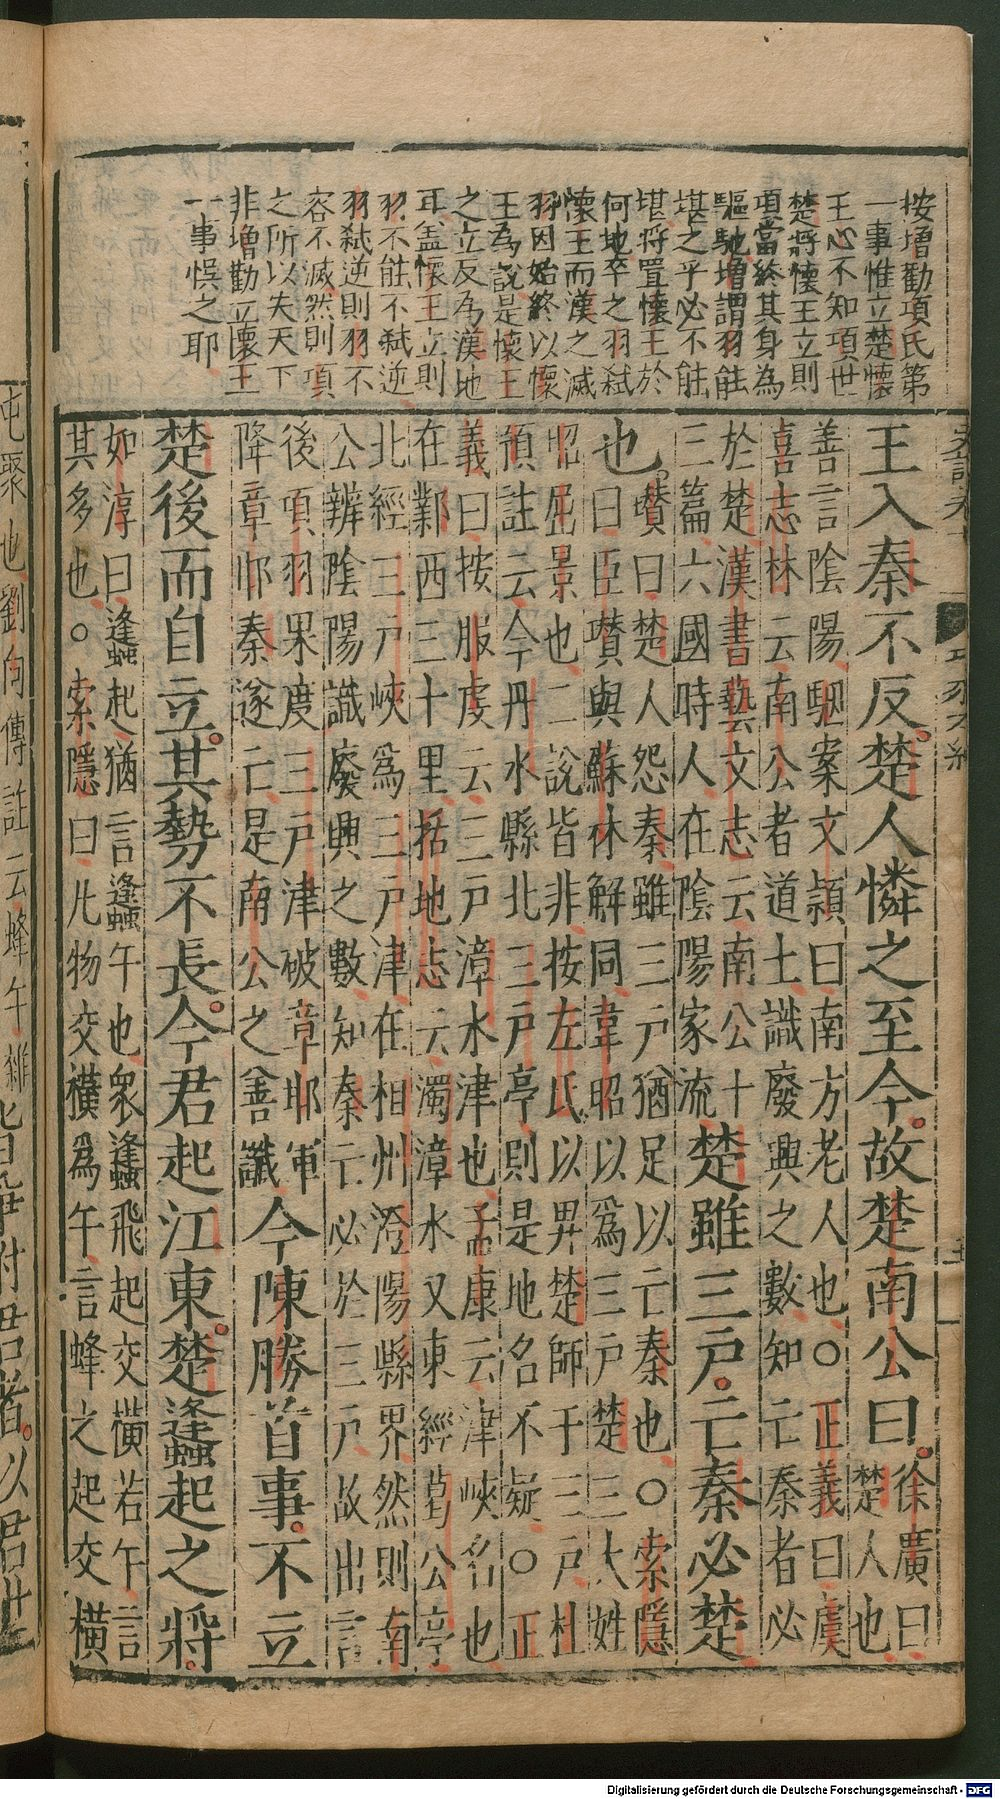 按增勸項氏第
一事惟立楚懷
王心不知項世
楚將懷王立則
項當終其身為
驅馳增謂羽能
堪之乎必不能
堪將置懷王於
何地卒之羽弒
懷王而漢之滅
羽因始終以懷
王為說是懷王
之立反為漢地
耳盖懷王立則
羽不能不弒逆
羽弒逆則羽不
容不滅然則項
之所以失天下
非增勸立懷王
一事悮之耶
王入秦不反楚人憐之至今故楚南公曰徐廣曰
楚人也
善言陰陽駰案文頴曰南方老人也○正義曰虞
喜志林云南公者道士識廢興之數知亡秦者必
於楚漢書藝文志云南公十
三篇六國時人在陰陽家流楚雖三户亡秦必楚
也瓚曰楚人怨秦雖三户猶足以亡秦也○索隱
曰臣瓚與蘇林解同韋昭以爲三户楚三大姓
昭屈景也二說皆非按左氏以畀楚師于三户杜
預註云今丹水縣北三户亭則是地名不疑○正
義曰按服虔云三户漳水津也孟康云津峽名也
在鄴西三十里括地志云濁漳水又東經葛公亭
北經三户峽爲三户津在相州滏陽縣界然則南
公辨陰陽識廢興之數知秦亡必於三户故出言
後項羽果度三户津破章耶軍
降章邯秦遂亡是南公之善讖今陳勝首事不立
楚後而自立其勢不長今君起江東楚蠭起之將
如淳曰蠭起猶言蠭午也衆蠭飛起交橫若午言
其多也○索隱曰凡物交橫爲午言蜂之起交橫
屯聚也劉向傳註云蜂午雜
君者以君世
Digitalisierung gefördert durch die Deutsche Forschungsgemeinschaft - DFG